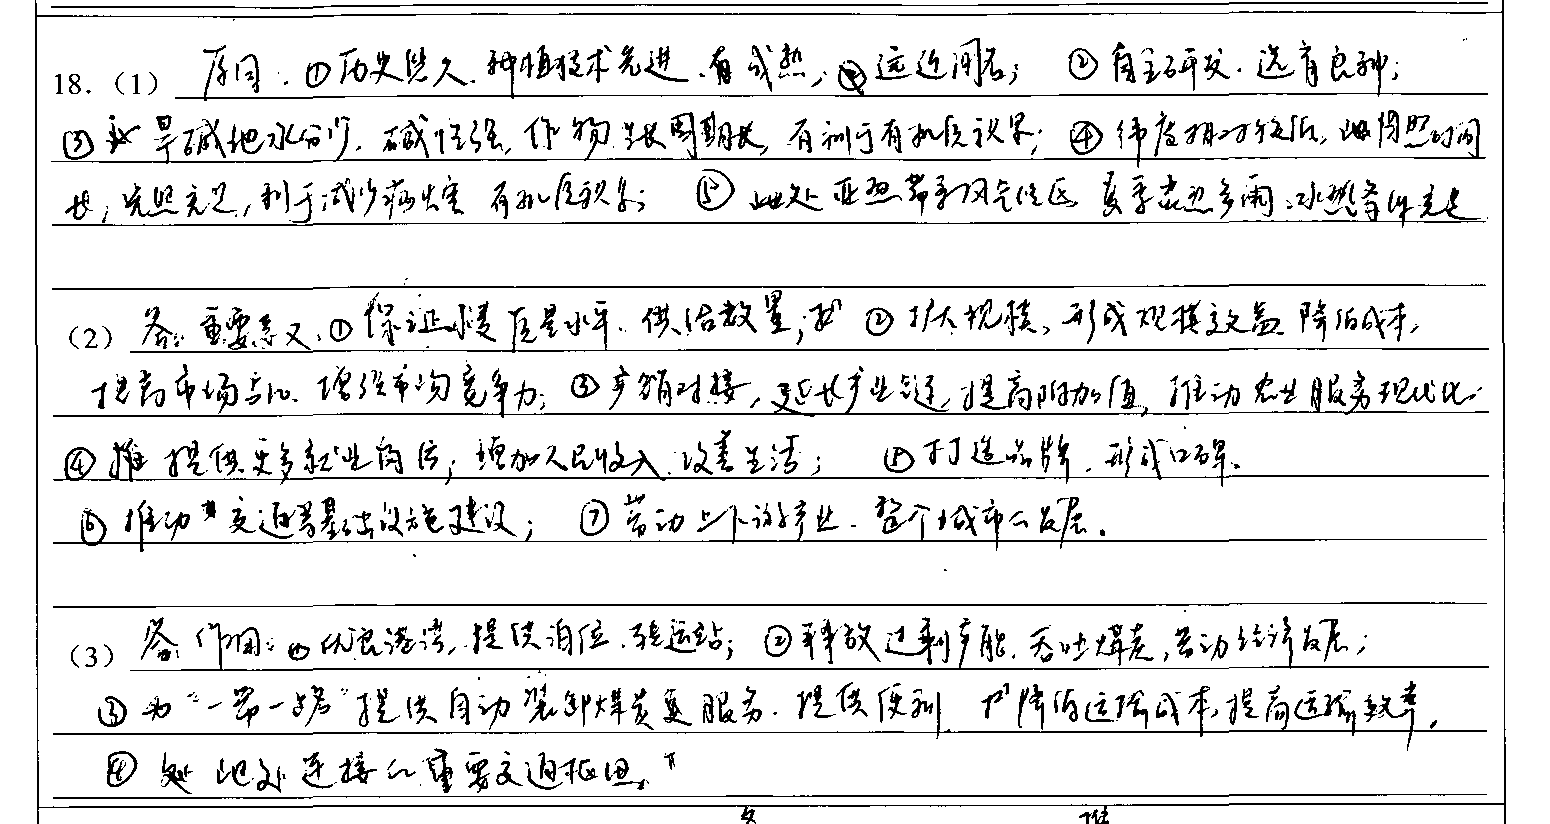 18.（1） 原因：①历史悠久，种植技术先进，有成熟，远近闻名； ②自主研发，选育良种；
③旱碱地水分少，碱性强，作物生长周期长，有利于有机质积累；④纬度相对较低，光照时间
长，光照充足，利于减少病虫害 有机质积累； ⑤此处亚热带季风气候区 夏季炎热多雨，水热条件充足
（2） 答：重要意义：①保证质量水平，供给数量； ②扩大规模，形成规模效益 降低成本，
提高市场占比，增强市场竞争力；③产销对接，延长产业链，提高附加值，推动农业服务现代化；
④提供更多就业岗位，增加人民收入，改善生活； ⑤打造品牌，形成口碑。
⑥推动交通等基础设施建设； ⑦带动上下游产业，整个城市的发展。
（3） 答：作用：①优良港湾，提供泊位，转运站；②释放过剩产能，吞吐煤炭，带动经济发展；
③为“一带一路”提供自动装卸煤炭服务，提供便利，降低运输成本，提高运输效率，
④此处连接的重要交通枢纽。